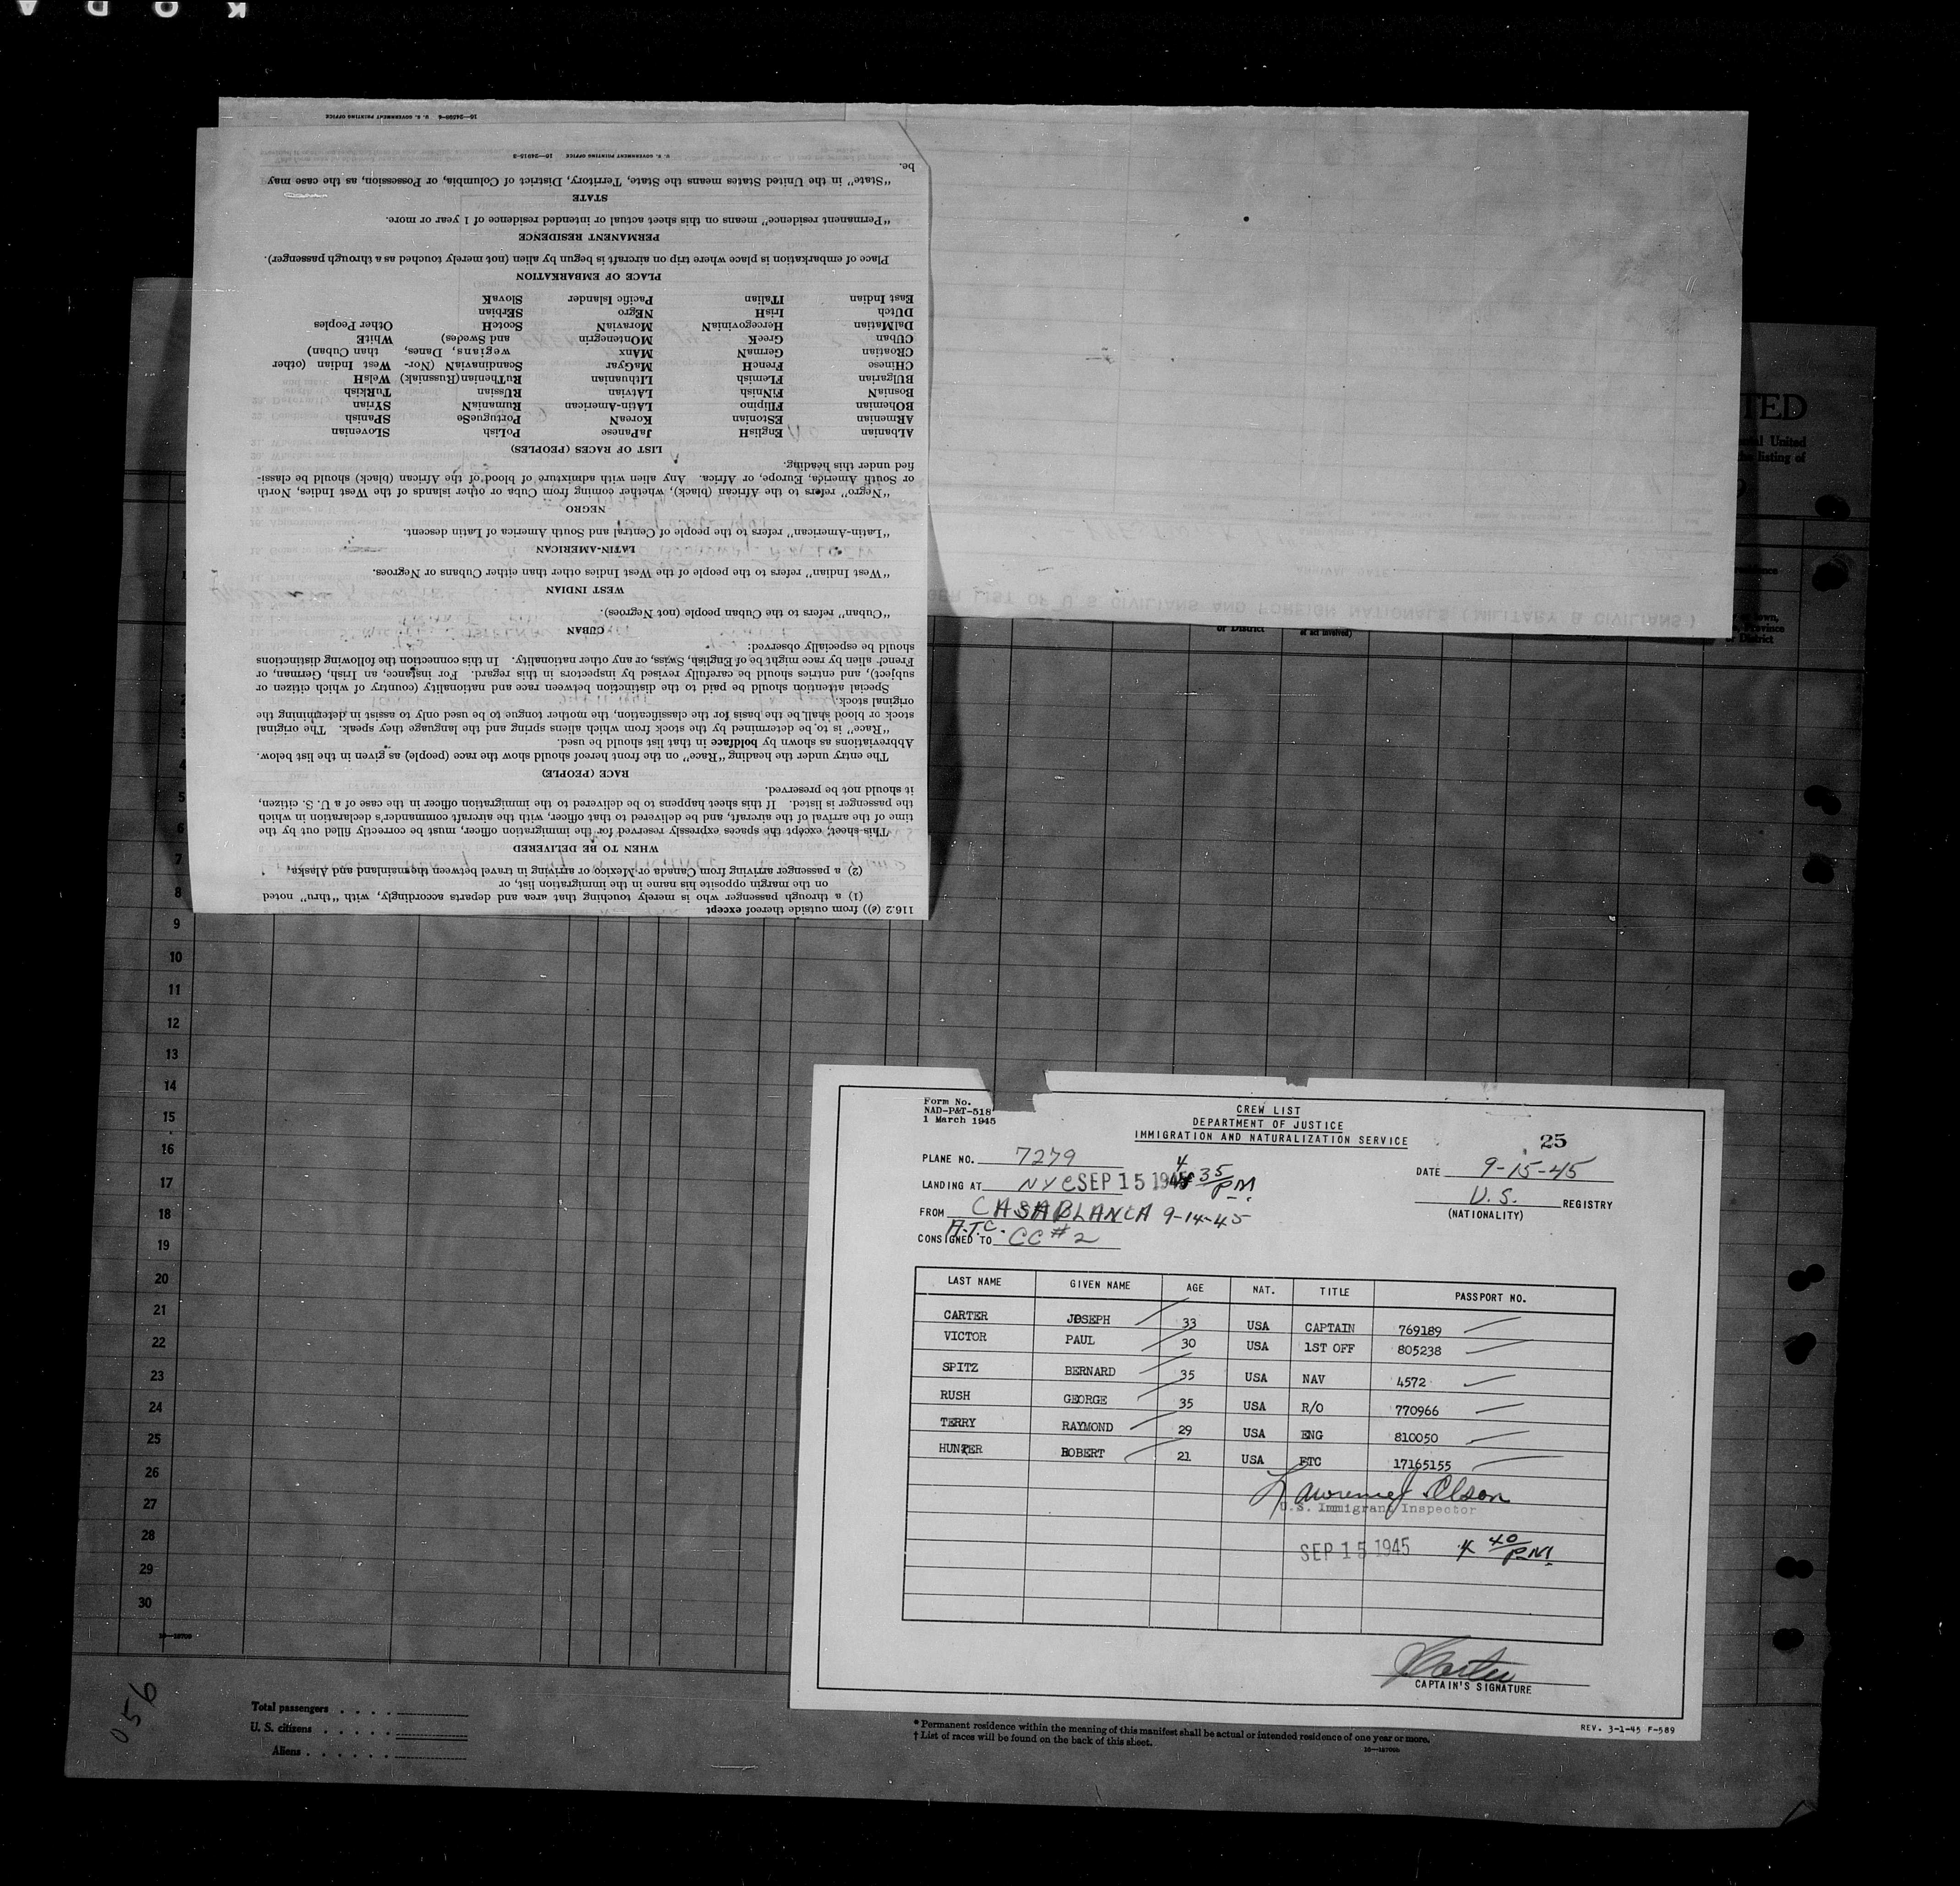 KODA
16—24590-6 U. S. GOVERNMENT PRINTING OFFICE
116.2 (e)) from outside thereof except
(1) a through passenger who is merely touching that area and departs accordingly, with "thru" noted
on the margin opposite his name in the immigration list, or
(2) a passenger arriving from Canada or Mexico or arriving in travel between the mainland and Alaska,
WHEN TO BE DELIVERED
This sheet, except the spaces expressly reserved for the immigration officer, must be correctly filled out by the
time of the arrival of the aircraft, and be delivered to that officer, with the aircraft commander's declaration in which
the passenger is listed. If this sheet happens to be delivered to the immigration officer in the case of a U. S. citizen,
it should not be preserved.
RACE (PEOPLE)
The entry under the heading "Race" on the front hereof should show the race (people) as given in the list below.
Abbreviations as shown by boldface in that list should be used.
"Race" is to be determined by the stock from which aliens spring and the language they speak. The original
stock or blood shall be the basis for the classification, the mother tongue to be used only to assist in determining the
original stock.
Special attention should be paid to the distinction between race and nationality (country of which citizen or
subject), and entries should be carefully revised by inspectors in this regard. For instance, an Irish, German, or
French alien by race might be of English, Swiss, or any other nationality. In this connection the following distinctions
should be especially observed:
CUBAN
"Cuban" refers to the Cuban people (not Negroes).
WEST INDIAN
"West Indian" refers to the people of the West Indies other than either Cubans or Negroes.
LATIN-AMERICAN
"Latin-American" refers to the people of Central and South America of Latin descent.
NEGRO
"Negro" refers to the African (black), whether coming from Cuba or other islands of the West Indies, North
or South America, Europe, or Africa. Any alien with admixture of blood of the African (black) should be classi-
fied under this heading.
LIST OF RACES (PEOPLES)
ALbanian EnglisH JaPanese PoLish SLOvenian
ARmenian EStonian KoreaN PortugueSe SPanish
BOhemian FIlipino LAtin-American RumaniaN SYrian
BosniaN FiNnish LATvian RUssian TuRKish
BUlgarian FLemish LIthuanian RuThenian (Russniak) WelsH
CHinese FrencH MaGyar ScandinaviaN (Nor- West Indian (other
CRoatian GermaN MAnx wegians, Danes, than Cuban)
CUban GreeK MOntenegrin and Swedes) WhitE
DalMatian HercegoviniaN MoraviaN ScotcH Other Peoples
DUtch IrisH NEgro SErbian
East Indian ITalian Pacific Islander SlovaK
PLACE OF EMBARKATION
Place of embarkation is place where trip on aircraft is begun by alien (not merely touched as a through passenger).
PERMANENT RESIDENCE
"Permanent residence" means on this sheet actual or intended residence of 1 year or more.
STATE
"State" in the United States means the State, Territory, District of Columbia, or Possession, as the case may
be.
U. S. GOVERNMENT PRINTING OFFICE 16—24915-2
GER LIST OF U.S CIVILIANS AND FOREIGN NATIONALS (MILITARY & CIVILIANS)
ARRIVAL DATE
TED
United
the listing of
or District
1
2
3
4
5
6
7
8
9
10
11
12
13
14
15
16
17
18
19
20
21
22
23
24
25
26
27
28
29
30
Form No.
NAD-P&T-518
1 March 1945
CREW LIST
DEPARTMENT OF JUSTICE
IMMIGRATION AND NATURALIZATION SERVICE
25
PLANE NO. 7279
DATE 9-15-45
LANDING AT NYC SEP 15 1945 4 35 PM
U.S. REGISTRY
(NATIONALITY)
FROM CASABLANCA 9-14-45
A.T.C.
CONSIGNED TO CC #2
LAST NAME GIVEN NAME AGE NAT. TITLE PASSPORT NO.
CARTER JOSEPH 33 USA CAPTAIN 769189
VICTOR PAUL 30 USA 1ST OFF 805238
SPITZ BERNARD 35 USA NAV 4572
RUSH GEORGE 35 USA R/O 770966
TERRY RAYMOND 29 USA ENG 810050
HUNTER ROBERT 21 USA FTC 17165155
Lawrence J. Olson
U.S. Immigrant Inspector
SEP 15 1945 4 40 PM
J Carter
CAPTAIN'S SIGNATURE
REV. 3-1-45 F-589
056
Total passengers
U. S. citizens
Aliens
* Permanent residence within the meaning of this manifest shall be actual or intended residence of one year or more.
† List of races will be found on the back of this sheet.